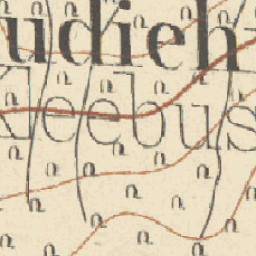 udieh
leebus